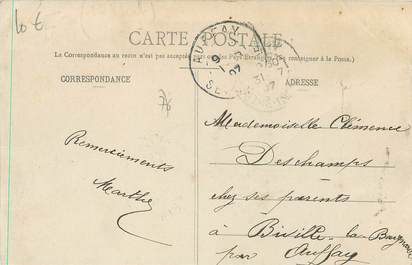 10 €
CARTE POSTALE
La Correspondance au recto n'est pas acceptée par tous les Pays Étrangers (Se renseigner à la Poste.)
CORRESPONDANCE
ADRESSE
AUFFAY
07
Remerciements
Marthe
Mademoiselle Clémence
Deschamps
chez ses parents
à Biville-la-Baignarde
par Auffay